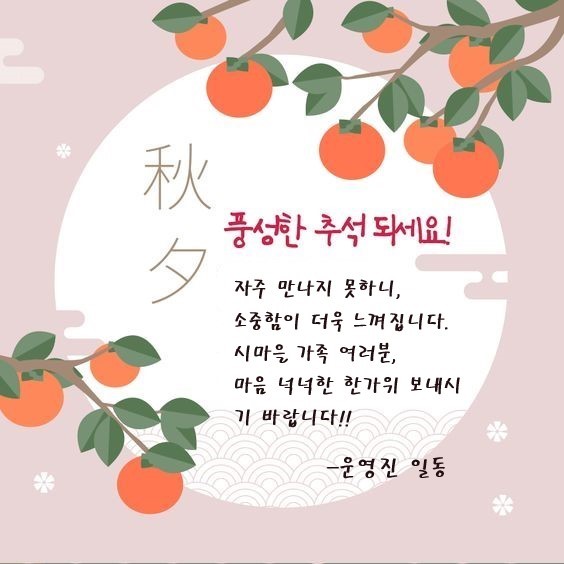 秋夕
풍성한 추석 되세요!
자주 만나지 못하니,
소중함이 더욱 느껴집니다.
시마을 가족 여러분,
마음 넉넉한 한가위 보내시
기 바랍니다!!
-운영진 일동